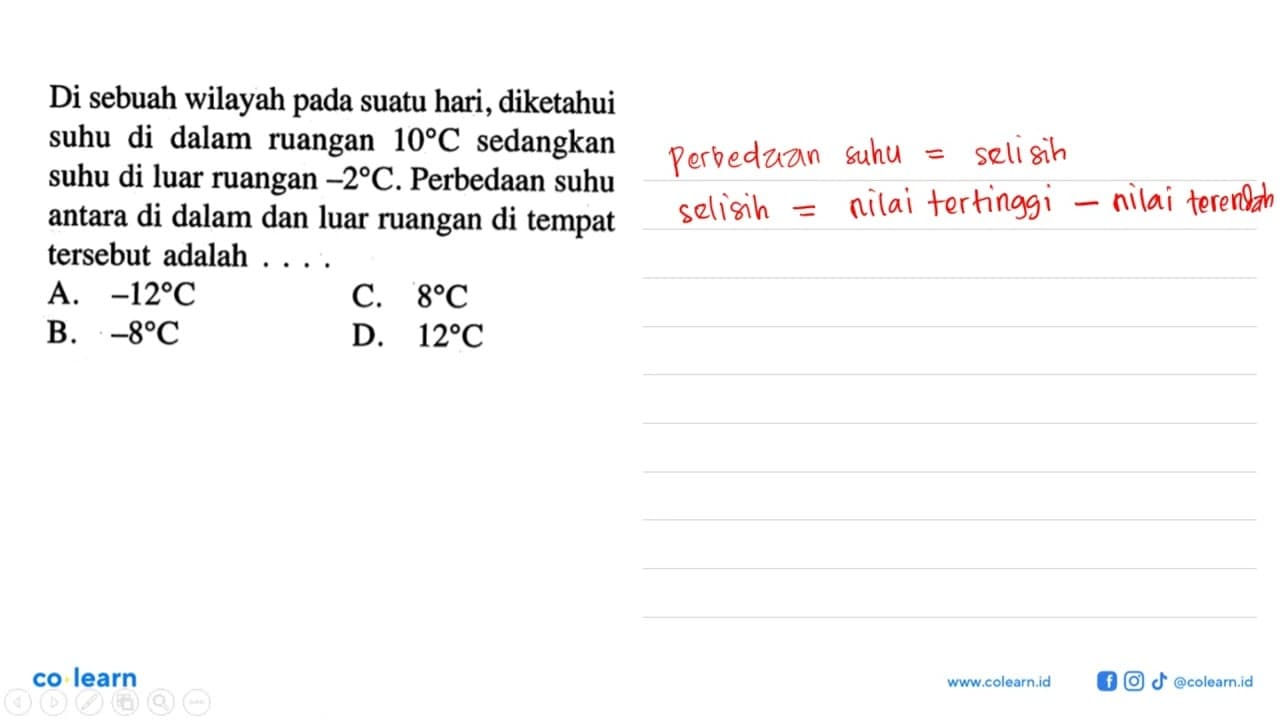 Di sebuah wilayah pada suatu hari, diketahui
suhu di dalam ruangan 10°C sedangkan
suhu di luar ruangan –2°C. Perbedaan suhu
antara di dalam dan luar ruangan di tempat
tersebut adalah . . . .
A. –12°C C. 8°C
B. –8°C D. 12°C
Perbedaan suhu = selisih
selisih = nilai tertinggi – nilai terendah
co learn
www.colearn.id @colearn.id